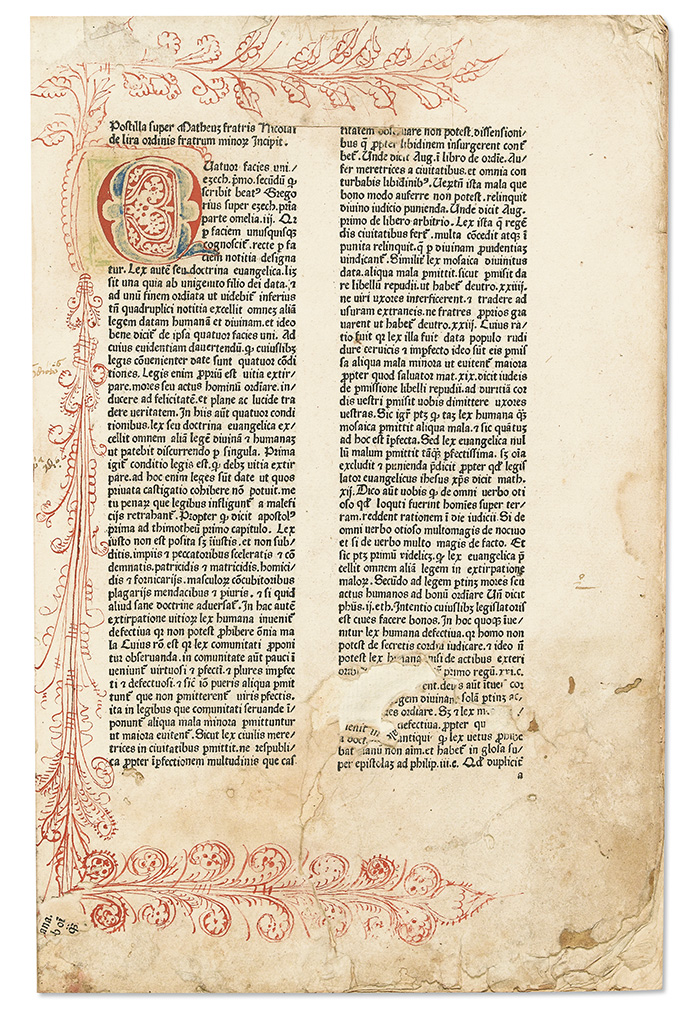 Postilla super Matheuȝ fratris Nicolai
de lira ordinis fratrum minoꝝ Incipit.
Quatuor facies uni/
ezech. pͥmo. secūdū ꝙ
scribit beatꝰ Grego
rius super ezech. pͥa
parte omelia. iij. Qꝛ
ꝑ faciem unusquisqꝫ
cognoscit͛. recte ꝑ fa
ciem notitia designa
tur. Lex autē seu doctrina evangelica. lıȝ
sit una quia ab unigenito filio dei data. ⁊
ad unū finem ordiata ut uidebit͛ inferius
tn̄ quadruplici notitia excellit omneȝ aliā
legem datam humanā et diuinam. et ideo
bene dicit͛ de ipsa quatuor facies uni. Ad
cuius euidentiam aduertendū. ꝙ cuiuslibȝ
legis cōuenienter date sunt quatuor cōdi
tiones. Legis enim ꝓpriū est uitia extir/
pare. mores seu actus hominū ordīare. in/
ducere ad felicitatē. et plane ac lucide tra
dere ueritatem. In hiis aūt quatuor condi
tionibus. lex seu doctrina euangelica ex/
cellit omnem aliā legē diuinā ⁊ humanaȝ
ut patebit discurrendo ꝑ singula. Prima
igit͛ conditio legis est. ꝙ debȝ uitia extir
pare. ad hoc enim leges sūt date ut quos
priuata castigatio cohibere nō potuit. me
tu penaꝝ que legibus infligunt͛ a malefi
cijs retrahant͛. Propter qͦ dicit apostolꝰ
prima ad thimotheū primo capitulo. Lex
iusto non est posita sȝ iīustis. et non sub/
ditis. impiis ⁊ peccatoribus sceleratis ⁊ cō
demnatis. patricidis ⁊ matricidis. homici/
dis ⁊ fornicarijs. masculoꝝ cōcubitoribus
plagarijs mendacibus ⁊ ꝑiuris. ⁊ si quid
aliud sane doctrine aduersat͛. In hac autē
extirpatione uitioꝝ lex humana inuenit͛
defectiua qꝛ non potest ꝓhibere ōnia ma
la Cuius rō est qꝛ lex comunitati ꝓponi
tur obseruanda. in comunitate aūt pauci ī
ueniunt͛ virtuosi ⁊ ꝑfecti. ⁊ plures imꝑfec
ti ⁊ defectuosi. ⁊ sic̄ iō pueris aliqua ꝑmit
tunt͛ que non ꝑmitterent͛ uiris ꝑfectis.
ita in legibus que comunitati seruande ī
ponunt͛ aliqua mala minora ꝑmittuntur
ut maiora euitent͛. Sicut lex ciuilis mere/
trices in ciuitatibus ꝑmittit. ne respubli/
ca ꝓpter īꝑfectionem multudinis que cas
titatem obseruare non potest. dissensioni/
bus ꝗ ꝓpter libidinem insurgerent cont͛
bet͛. Unde dicit Aug. ī libro de ordīe. Au/
fer meretrices a ciuitatibus. et omnia con
turbabis libidinibꝰ. Ueꝝtn̄ ista mala que
bono modo auferre non potest. relinquit
diuino iudicio punienda. Unde dicit Aug.
primo de libero arbitrio. Lex ista ꝗ regē
dis ciuitatibus fert͛. multa cōcedit atqꝫ ī
punita relinquit. ꝗ ꝑ diuinam ꝓuidentiaȝ
vindicant͛. Similit͛ lex mosaica diuinitus
data. aliqua mala ꝑmittit. sicut ꝑmisit da
re libellū repudii. ut habet͛ deutro. xxiiij.
ne uiri uxores interficerent. ⁊ tradere ad
usuram extraneis. ne fratres ꝓprios gra
uarent ut habet͛ deutro. xxiij. Cuius ra/
tio fuit qꝛ lex illa fuit data populo rudi
dure ceruicis ⁊ imꝑfecto ideo sūt eis ꝑmis
sa aliqua mala minora ut euitent͛ maiora
ꝓpter quod saluator mat. xix. dicit iudeis
de ꝑmissione libelli repudii. ad duritiā cor
dis uestri ꝑmisit uobis dimittere uxores
uestras. Sic igit͛ ptȝ ꝙ taȝ lex humana ꝙ̄
mosaica ꝑmittit aliqua mala. ⁊ sic quātuȝ
ad hoc est īꝑfecta. Sed lex euangelica nul
lū malum ꝑmittit tāꝙ̄ ꝑfectissima. sȝ oīa
excludit ⁊ punienda p̄dicit ꝓpter qͦ legis
lator euangelicus ihesus xp̄s dicit math.
xij. Dico aūt uobis ꝙ de omni verbo oti
oso qͦ loquti fuerint homies super ter/
ram. reddent rationem ī die iudicii. Si de
omni verbo otioso multomagis de nociuo
et si de verbo multo magis de facto. Et
sic ptȝ primū videlicȝ. ꝙ lex euangelica p̄
cellit omnem aliā legem in extirpatione
maloꝝ. Secūdo ad legem ptinȝ mores seu
actus humanos ad bonū ordīare Un̄ dicit
ph̄us. ij. eth. Intentio cuiuslibȝ legislatoris
est ciues facere bonos. In hoc quoqȝ iue/
nitur lex humana defectiua. qꝛ homo non
potest de secretis cordis iudicare. ⁊ ideo ī
potest lex humana nisi de actibus exteri
primo regū. xvi. c.
deus aūt ituet͛ cor
legem diuinam solā ptinȝ ac/
res ordiare. Sȝ ⁊ lex
defectiua. ꝓpter qu
antiqui ꝙ lex uetus ꝓhibe
bat manū non aīm. et habet͛ in glosa su/
per epistolaȝ ad philip. iii. e. Qͦ dupliciter
a
ana.
b oi